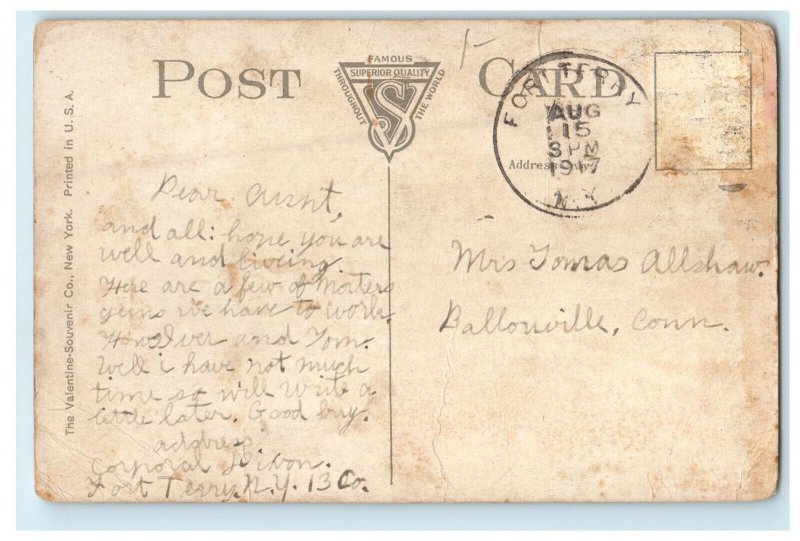 POST CARD
FAMOUS
SUPERIOR QUALITY
THROUGHOUT THE WORLD
VS
1-
FORT TERRY
AUG
15
3 PM
1917
N.Y.
Address Only
The Valentine-Souvenir Co., New York. Printed in U.S.A.
Dear Aunt,
and all: hope you are
well and liveing
Here are a few of Morters
guns we have to work.
How and Tom.
Well i have not much
time so will write a
little later. Good buy.
address,
Corporal Dixon.
Fort Terry. N.Y. 13 Co.
Mrs Tomas Allshaw.
Ballouville, Conn.